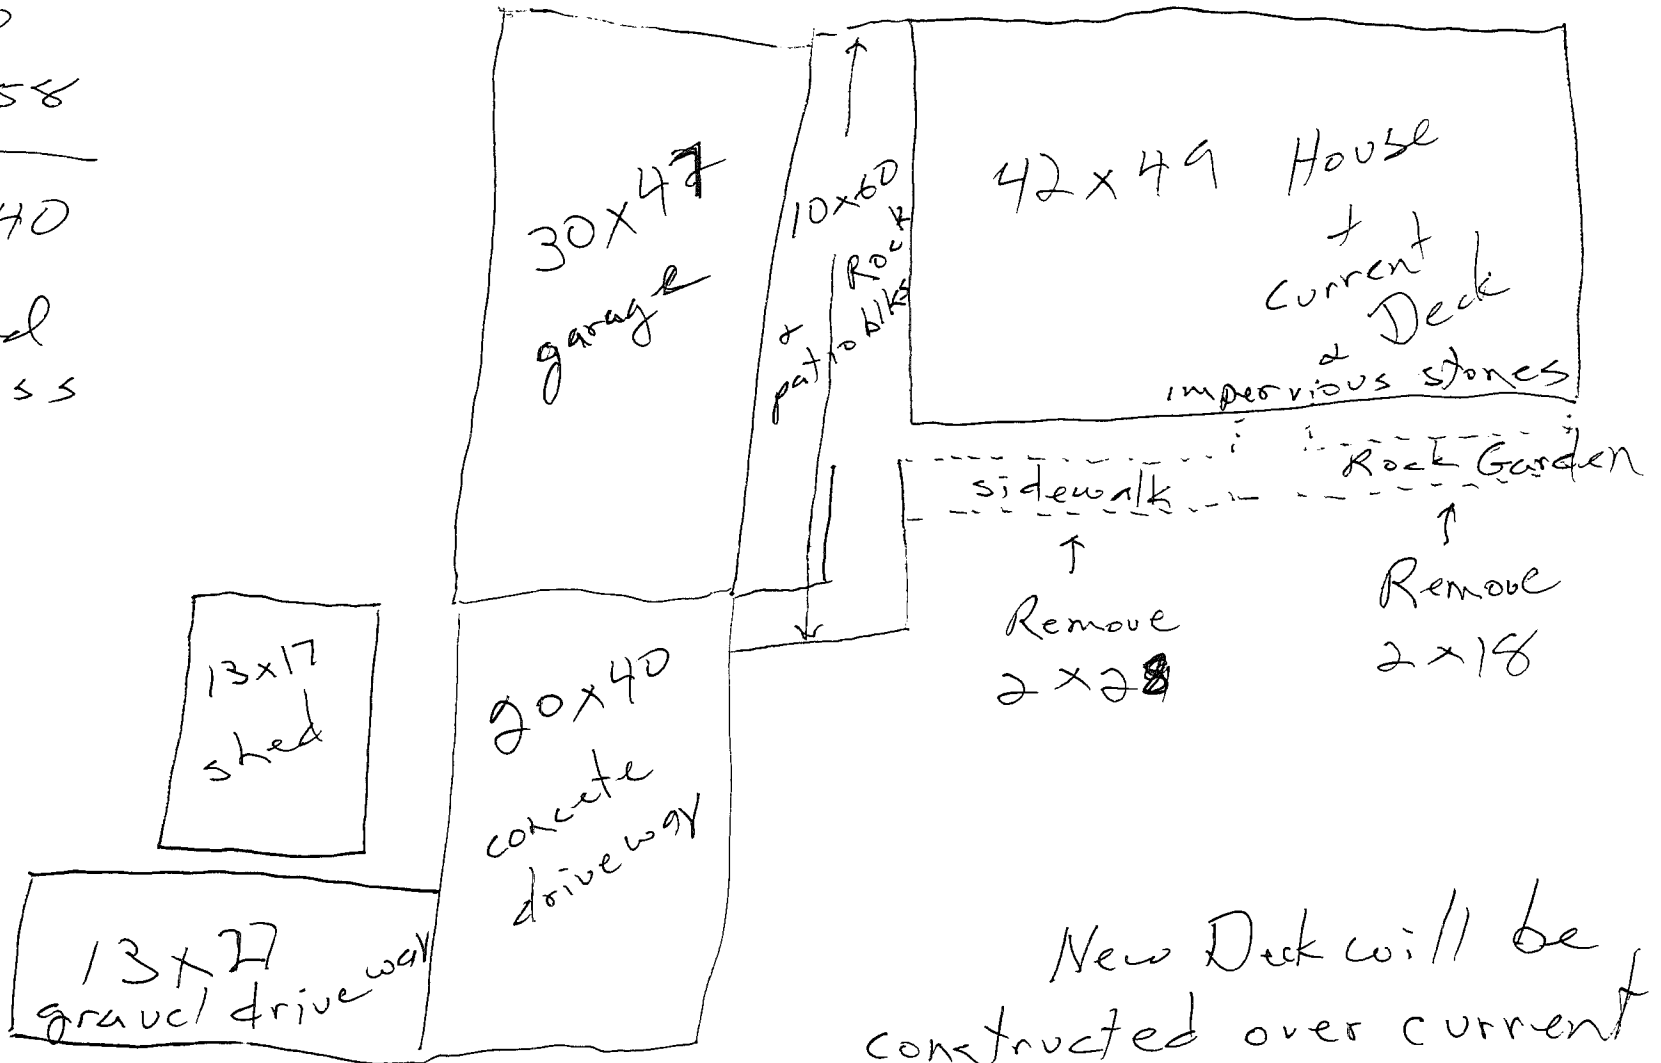 58
40
ss
30x47
garage
10x60
Rock
&
patio blks
42x49 House
+
current
Deck
&
impervious stones
sidewalk
Rock Garden
Remove
2x28
Remove
2x18
13x17
shed
20x40
concrete
driveway
13x27
gravel driveway
New Deck will be
constructed over current